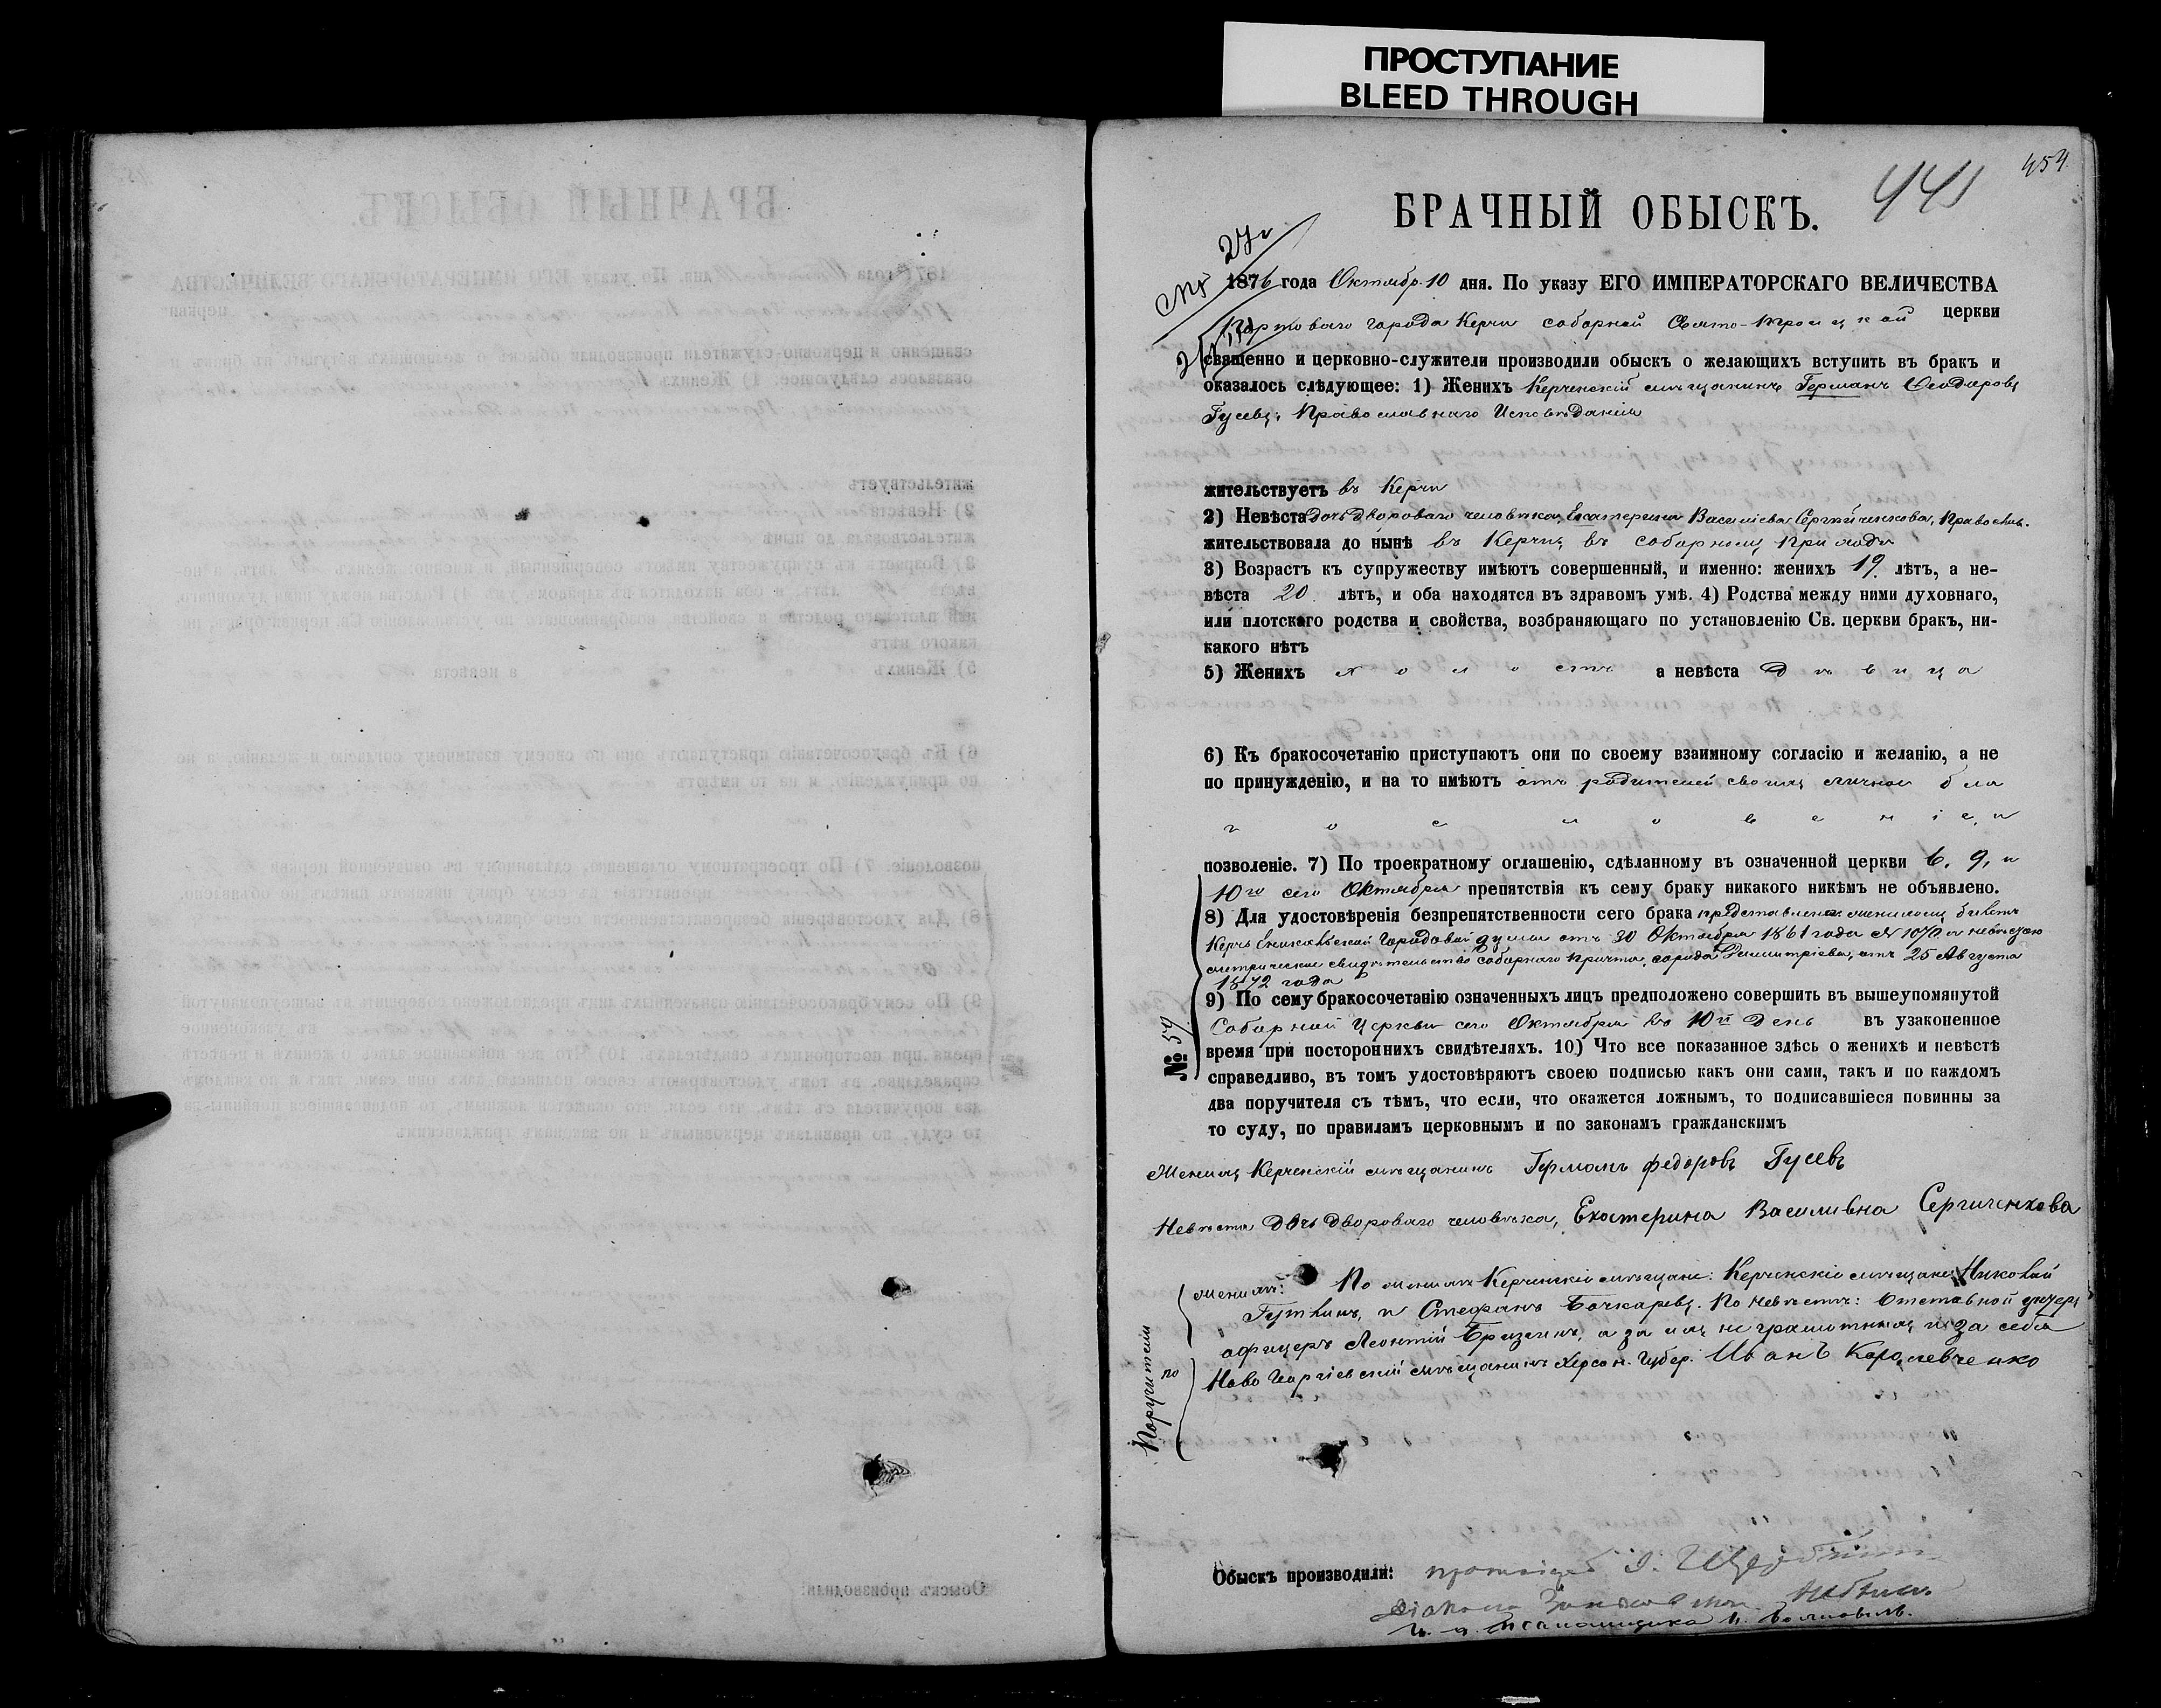 ПРОСТУПАНИЕ
BLEED THROUGH
454.
441
БРАЧНЫЙ ОБЫСКЪ.
1876 года Октябр. 10 дня. По указу ЕГО ИМПЕРАТОРСКАГО ВЕЛИЧЕСТВА
Портоваго города Керчи соборной Свято-Троицкой церкви
священно и церковно-служители производили обыскъ о желающихъ вступить въ бракъ и
оказалось слѣдующее: 1) Женихъ Керченскій мѣщанинъ Германъ Ѳеодоровъ
Гусевъ, Православнаго Исповѣданія
жительствуетъ въ Керчи
2) Невѣста дочь двороваго человѣка, Екатерина Васильева Сергійченкова, Православ.
жительствовала до нынѣ въ Керчи, въ соборномъ приходѣ
3) Возрастъ къ супружеству имѣютъ совершенный, и именно: женихъ 19 лѣтъ, а не-
вѣста 20 лѣтъ, и оба находятся въ здравомъ умѣ. 4) Родства между ними духовнаго,
или плотскаго родства и свойства, возбраняющаго по установленію Св. церкви бракъ, ни-
какого нѣтъ
5) Женихъ холостъ а невѣста Дѣвица
6) Къ бракосочетанію приступаютъ они по своему взаимному согласію и желанію, а не
по принужденію, и на то имѣютъ отъ родителей своихъ личное бла
гословеніе, и
позволеніе. 7) По троекратному оглашенію, сдѣланному въ означенной церкви 6, 9, и
10го сего Октября препятствія къ сему браку никакого никѣмъ не объявлено.
8) Для удостовѣренія безпрепятственности сего брака представлены женихомъ билетъ
Керчь Еникальской Городовой думы отъ 30 Октября 1861 года № а невѣстою
метрическое свидѣтельство соборнаго причта, города Димитріева, отъ 25 Августа
1872 года
9) По сему бракосочетанію означенныхъ лицъ предположено совершить въ вышеупомянутой
Соборной Церкви сего Октября въ 10й день въ узаконенное
№ 59
время при постороннихъ свидѣтеляхъ. 10) Что все показанное здѣсь о женихѣ и невѣстѣ
справедливо, въ томъ удостовѣряютъ своею подписью какъ они сами, такъ и по каждомъ
два поручителя съ тѣмъ, что если, что окажется ложнымъ, то подписавшіеся повинны за
то суду, по правиламъ церковнымъ и по законамъ гражданскимъ
Женихъ Керченскій мѣщанинъ Германъ Федоровъ Гусевъ
Невѣста дочь двороваго человѣка, Екатерина Василивна Сергиченкова
Поручители по
женихѣ: По женихѣ Керченскіе мѣщане: Керченскіе мѣщане Николай
и Стефанъ Бочкаревъ. По Невѣстѣ: Отставной унтеръ
офицеръ Леонтій а за ихъ неграмотныхъ и за себя
Ново Георгіевскій мѣщанинъ Херсон. Губер. Иванъ Королевченко
Обыскъ производили: протоіерей
Діаконъ
И. д. Псаломщика